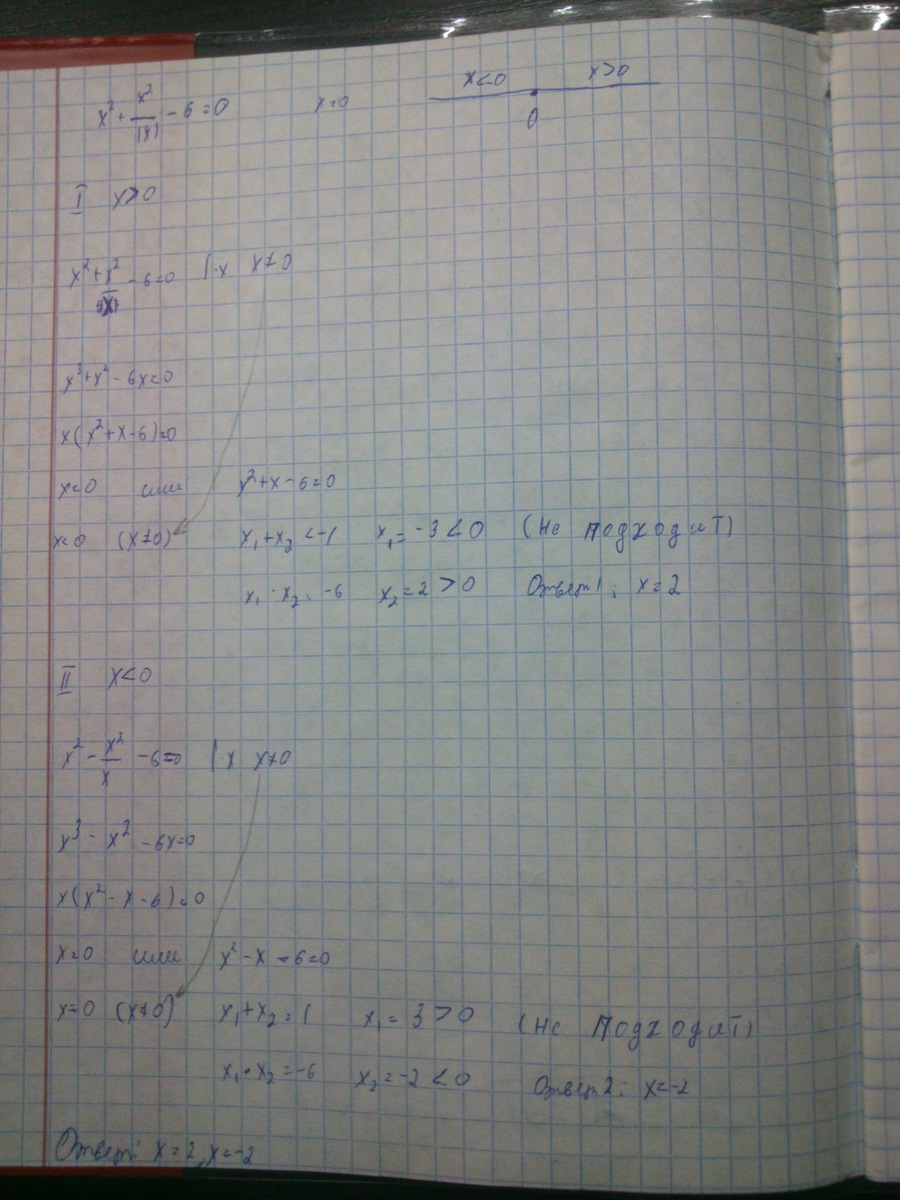 x² + x²/|x| - 6 = 0   x = 0   x<0   x>0
0
I   x>0
x² + x²/x - 6 = 0   |·x   x≠0
x³ + x² - 6x = 0
x(x² + x - 6) = 0
x=0   или   x² + x - 6 = 0
x=0   (x≠0)   x₁ + x₂ = -1   x₁ = -3 < 0   (Не подходит)
x₁ · x₂ = -6   x₂ = 2 > 0   Ответ 1: x = 2
II   x<0
x² - x²/x - 6 = 0   |·x   x≠0
x³ - x² - 6x = 0
x(x² - x - 6) = 0
x=0   или   x² - x - 6 = 0
x=0   (x≠0)   x₁ + x₂ = 1   x₁ = 3 > 0   (Не подходит)
x₁ · x₂ = -6   x₂ = -2 < 0   Ответ 2: x = -2
Ответ: x = 2, x = -2